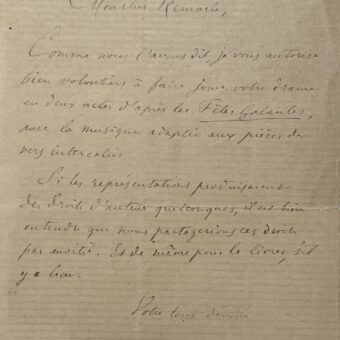 Mon cher Rémacle,
Comme nous l'avons dit, je vous autorise
bien volontiers à faire jouer votre drame
en deux actes d'après les Fêtes Galantes,
avec la musique adaptée aux pièces de
vers intercalées
Si les représentations produisaient
des droits d'auteur quelconques, il est bien
entendu que nous partagerions ces droits
par moitié. Et de même pour le livret, s'il
y a lieu.
Votre tout dévoué